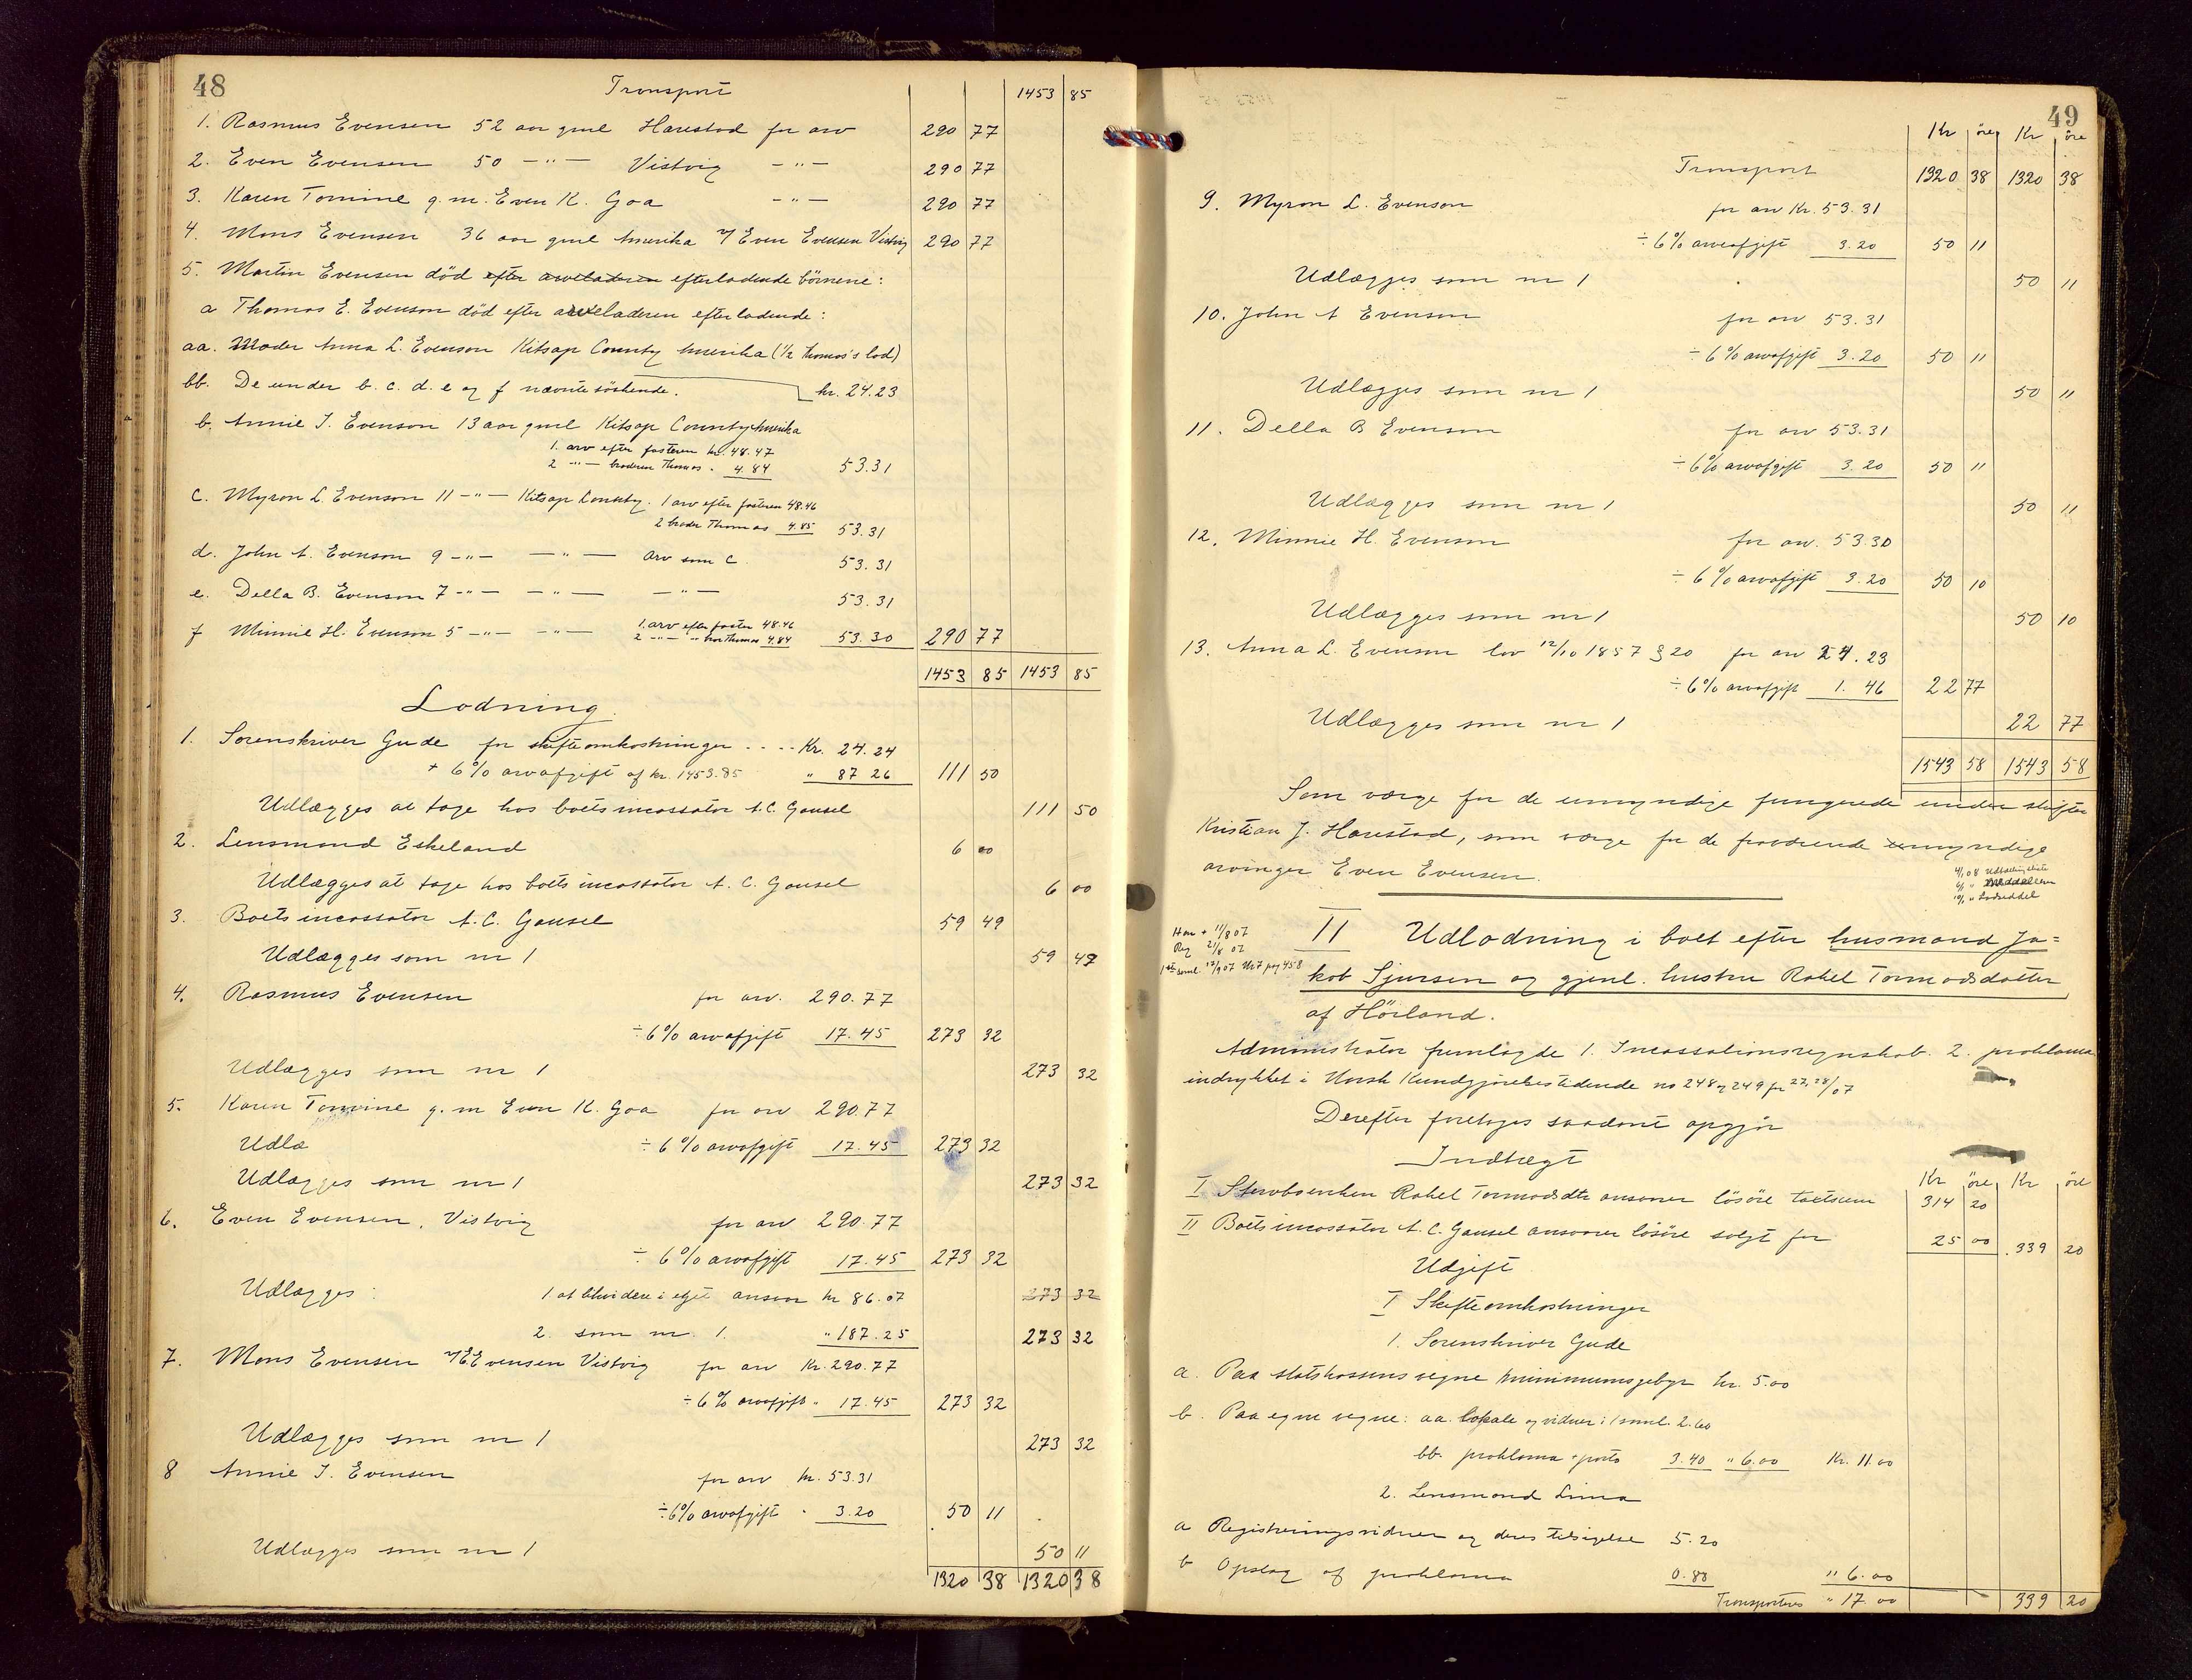 48
Transport 1453 85
1. Rasmus Evensen 52 aar gml Harestad for arv 290 77
2. Even Evensen 50 —"— Vistvig —"— 290 77
3. Karen Tomine g. m. Even K. Goa —"— 290 77
4. Mons Evensen 36 aar gml Amerika v/ Even Evensen Vistvig 290 77
5. Martin Evensen död efter arveladeren efterladende börnene:
a Thomas E. Evenson död efter arveladeren efterladende:
aa. Moder Anna L. Evenson Kitsap County Amerika (1/2 Thomas's lod)
bb. De under b. c. d. e og f nævnte söskende. kr. 24.23
b. Annie J. Evenson 13 aar gml Kitsap County Amerika
1. arv efter fasteren kr. 48.47
2 —"— broderen Thomas " 4.84 53.31
c. Myron L. Evenson 11 —"— Kitsap County. 1 arv efter fasteren 48.46
2 broder Thomas 4.85 53.31
d. John A. Evenson 9 —"— —"— arv som c. 53.31
e. Della B. Evenson 7 —"— —"— —"— 53.31
f Minnie H. Evenson 5 —"— —"— 1. arv efter faster 48.46
2 —"— " bror Thomas 4.84 53.30 290 77
1453 85 1453 85
Lodning
1. Sorenskriver Gude for skifteomkostninger .... Kr. 24.24
+ 6% arvafgift af kr. 1453.85 " 87 26 111 50
Udlægges at tage hos boets incassator A. C. Gausel 111 50
2. Lensmand Eskeland 6 00
Udlægges at tage hos boets incassator A. C. Gausel 6 00
3. Boets incassator A. C. Gausel 59 49
Udlægges som nr 1 59 49
4. Rasmus Evensen for arv. 290.77
÷ 6% arvafgift 17.45 273 32
Udlægges som nr 1 273 32
5. Karen Tomine g. m Even K. Goa for arv 290.77
Udlæ ÷ 6% arvafgift 17.45 273 32
Udlægges som nr 1 273 32
6. Even Evensen, Vistvig for arv 290.77
÷ 6% arvafgift 17.45 273 32
Udlægges: 1 at likvidere i eget ansvar kr 86.07 273 32
2. som nr. 1. " 187.25 273 32
7. Mons Evensen v/ E Evensen Vistvig for arv Kr. 290.77
÷ 6% arvafgift " 17.45 273 32
Udlægges som nr 1 273 32
8 Annie J. Evensen for arv kr. 53.31
÷ 6% arvafgift " 3.20 50 11
Udlægges som nr 1 50 11
1320 38 1320 38
49
Kr öre Kr öre
Transport 1320 38 1320 38
9. Myron L. Evenson for arv Kr. 53.31
÷ 6% arveafgift 3.20 50 11
Udlægges som nr 1 50 11
10. John A Evenson for arv 53.31
÷ 6% arvafgift 3.20 50 11
Udlægges som nr 1 50 11
11. Della B Evenson for arv 53.31
÷ 6% arvafgift 3.20 50 11
Udlægges som nr 1 50 11
12. Minnie H. Evenson for arv. 53.30
÷ 6% arvafgift 3.20 50 10
Udlægges som nr 1 50 10
13. Anna L. Evenson lov 12/10 1857 § 20 for arv 24.23
÷ 6% arvafgift 1. 46 22 77
Udlægges som nr 1 22 77
1543 58 1543 58
Som værge for de umyndige fungerede under skiftet
Kristian J. Harestad, som værge for de fraværende umyndige
arvinger Even Evensen.
4/1 08 Udlodningsliste
6/1 " Meddelelser
10/1 " Lodseddel
Han + 11/8 07
Reg 21/8 07
1ste saml. 12/9 07 Nr 7 pag 458
II Udlodning i boet efter husmand Ja=
kob Sjursen og gjenl. hustru Rakel Tormodsdatter
af Hörland.
Administrator fremlagde 1. Incassationsregnskab. 2. proklama
indrykket i Norsk Kundgjörelsestidende no 248 og 249 for 27, 28/ 07
Derefter foretoges saadant opgjör
Indtægt
Kr öre Kr öre
I Stervboenken Rakel Tormodsdtr ansvarer lösöre taxtsum 314 20
II Boets incassator A. C. Gausel ansvarer lösöre solgt for 25 00 339 20
Udgift
I Skifteomkostninger
1. Sorenskriver Gude
a. Paa statskassens vegne minimumsgebyr kr. 5.00
b. Paa egne vegne: aa. lokale og vidner i 1 saml. 2.60
bb. proklama + porto 3.40 " 6.00 Kr. 11.00
2. Lensmand Lima
a Registreringsvidner og deres tilsigelse 5.20
b Opslag af proklama 0.80 " 6.00
Transporteres " 17.00 339 20